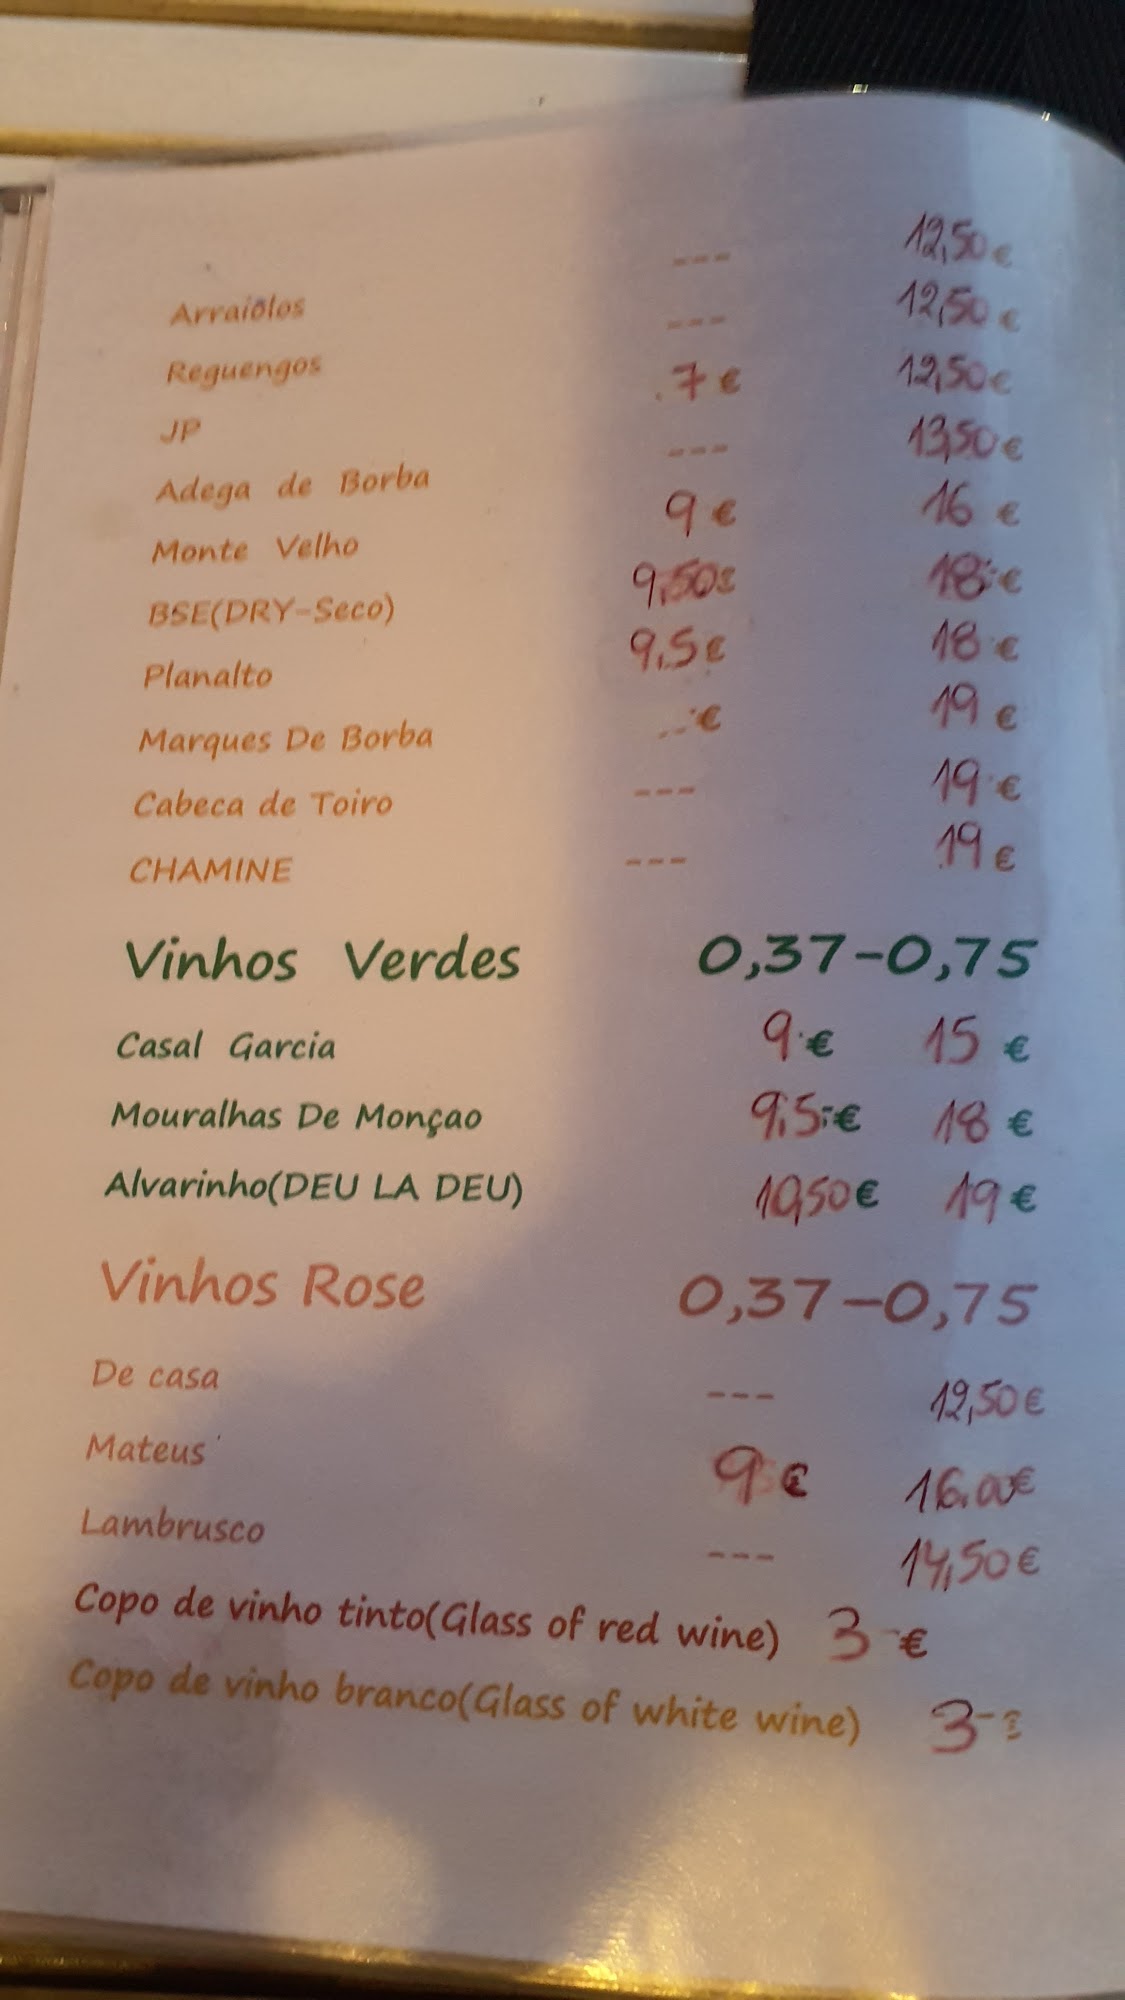 Arraiólos --- 12,50€
Reguengos --- 12,50€
JP 7€ 12,50€
Adega de Borba --- 13,50€
Monte Velho 9€ 16€
BSE(DRY-Seco) 9,50€ 18€
Planalto 9,5€ 18€
Marques De Borba € 19€
Cabeca de Toiro --- 19€
CHAMINE --- 19€
Vinhos Verdes 0,37-0,75
Casal Garcia 9€ 15€
Mouralhas De Monçao 9,5€ 18€
Alvarinho(DEU LA DEU) 10,50€ 19€
Vinhos Rose 0,37-0,75
De casa --- 12,50€
Mateus 9€ 16,00€
Lambrusco --- 14,50€
Copo de vinho tinto(Glass of red wine) 3€
Copo de vinho branco(Glass of white wine) 3